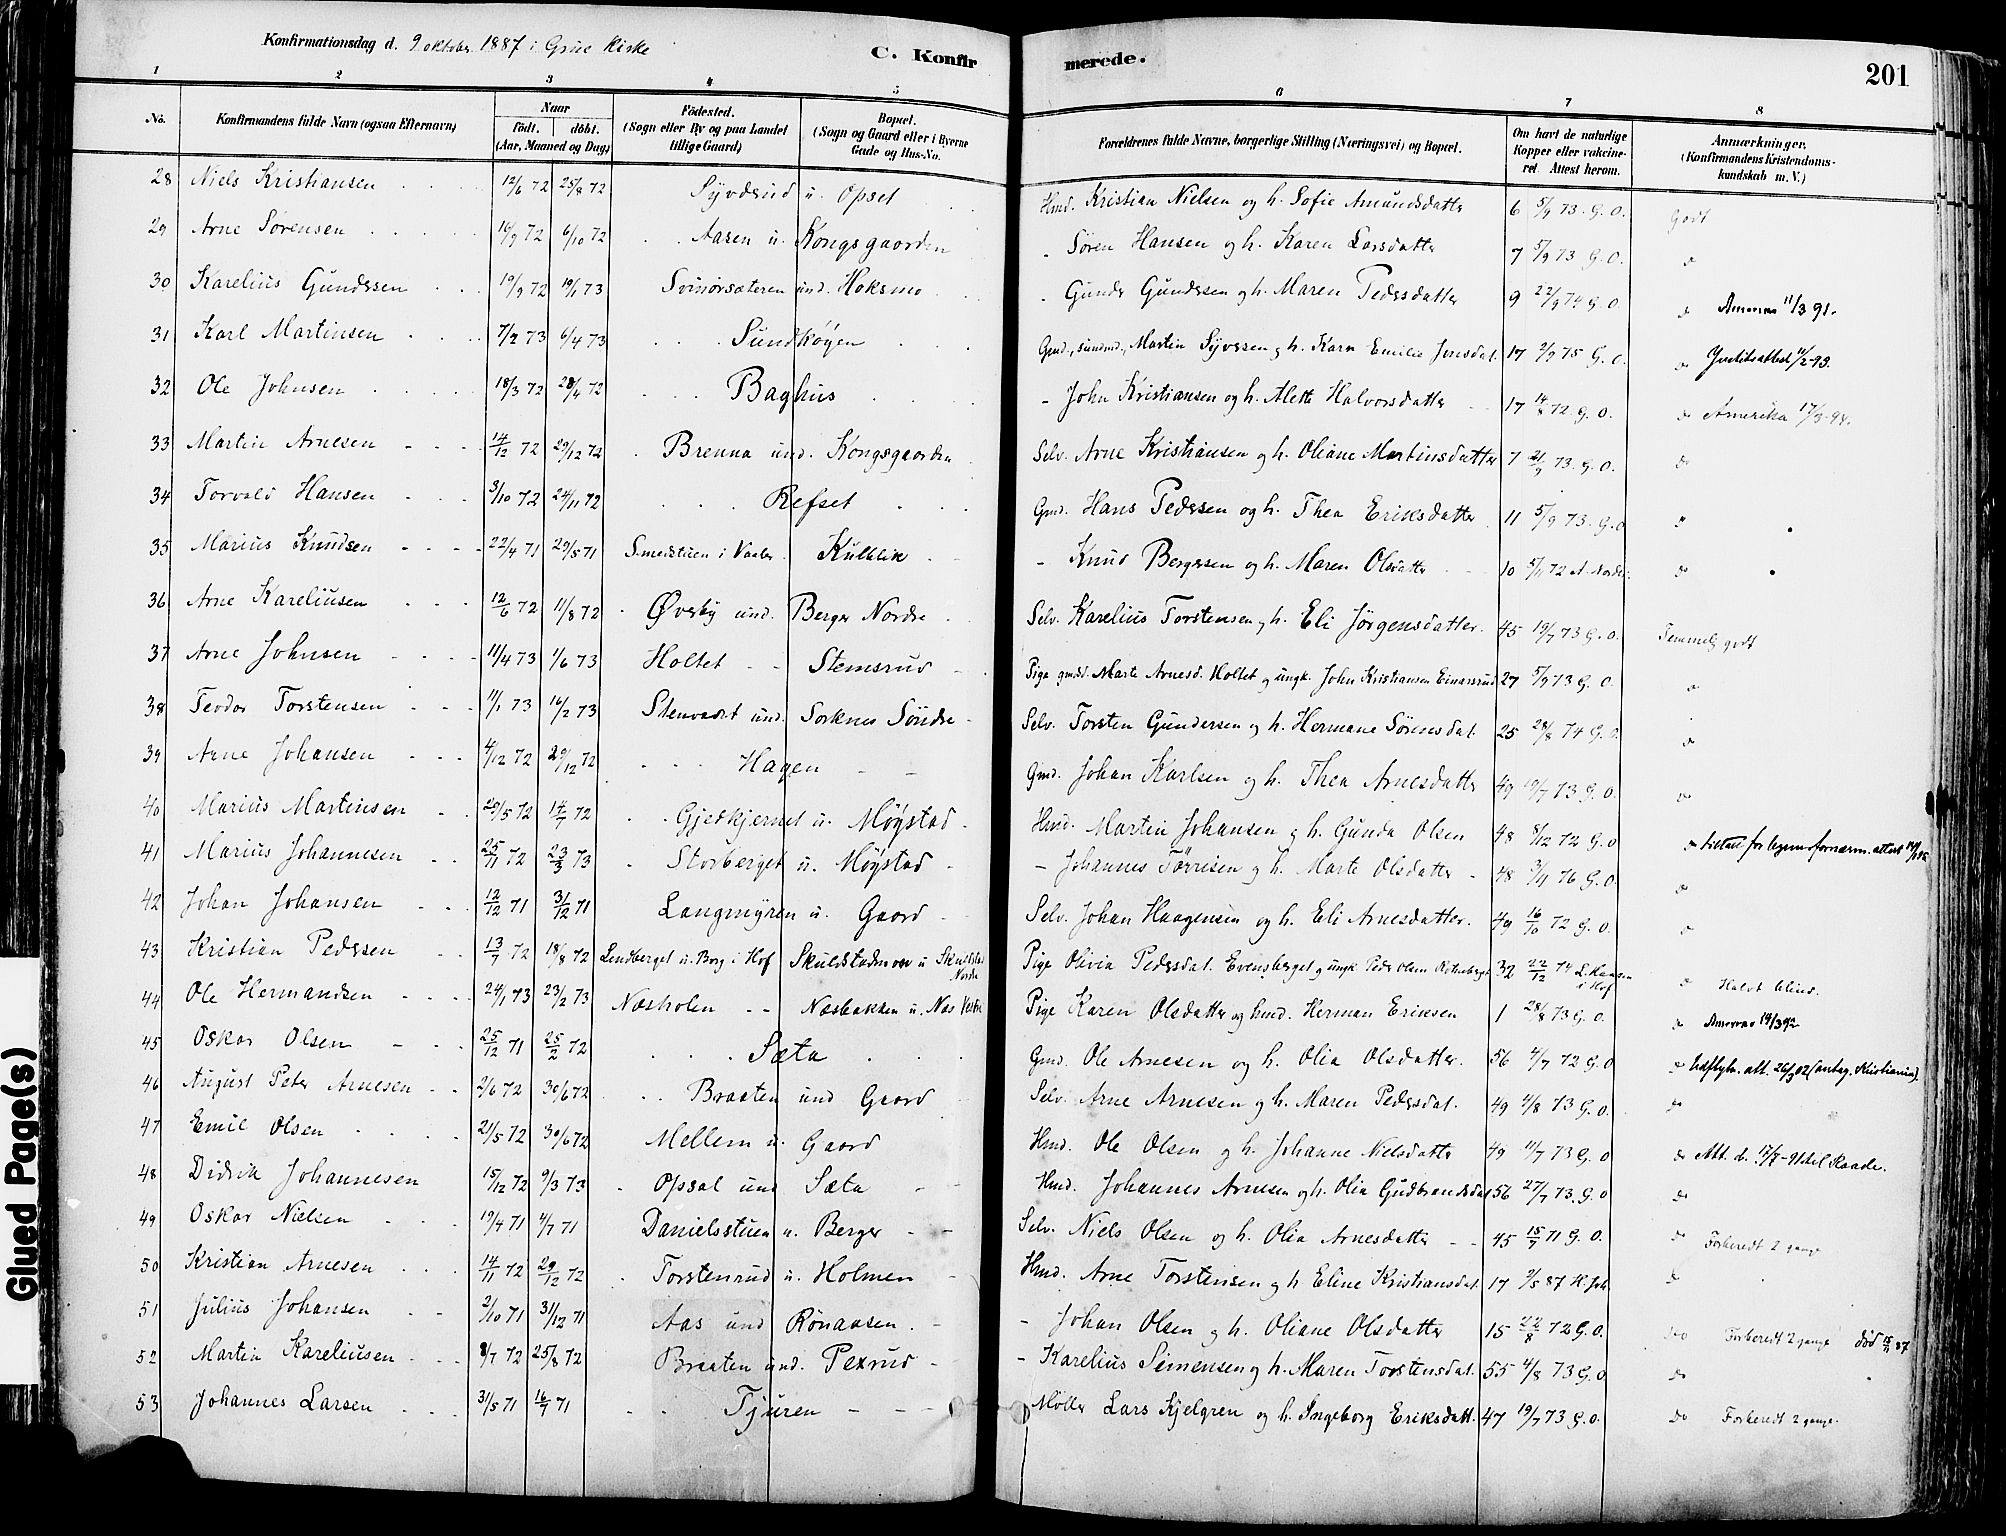 Konfirmationsdag d. 9 oktober 1887 i Grue Kirke
C. Konfirmerede.
201
1 2 3 4 5 6 7 8
No. Konfirmandens fulde Navn (ogsaa Efternavn) Naar født. døbt. (Aar, Maaned og Dag) Fødested. (Sogn eller By og paa Landet tillige Gaard) Bopæl. (Sogn og Gaard eller i Byerne Gade og Hus-No. Forældrenes fulde Navne, borgerlige Stilling (Næringsvei) og Bopæl. Om havt de naturlige Kopper eller vakcineret. Attest herom. Anmærkninger. (Konfirmandens Kristendomskundskab m. V.)
28 Niels Kristiansen 12/6 72 25/8 72 Syvdsrud u. Opset Hmd. Kristian Nielsen og h. Sofie Amundsdatter 6 5/9 73. G. O. Godt
29 Arne Sørensen 16/9 72 6/10 72 Aasen u. Kongsgaarden - Søren Hansen og h. Karen Larsdatter 7 5/9 73 G. O. do
30 Karelius Gundersen 19/9 72 19/1 73 Svinørsæteren und. Hoksmo - Gunder Gundersen og h. Maren Pedersdatter 9 22/9 74 G. O. do Amerika 11/3 91.
31 Karl Martinsen 7/2 73 6/4 73 Sundhøgen Gmd., sundmd., Martin Syversen og h. Karn Emilie Jonsdat. 17 2/9 75 G. O. do 11/2-93.
32 Ole Johnsen 18/3 72 28/4 72 Baghus - John Kristiansen og h. Alette Halvorsdatter 17 14/8 72 G. O. do Amerika 17/3-94.
33 Martin Arnesen 14/12 72 29/12 72 Brenna und. Kongsgaarden Selv. Arne Kristiansen og h. Oliane Martinsdatter 7 21/9 73. G. O. do
34 Torvald Hansen 3/10 72 24/11 72 Refset Gmd. Hans Pedersen og h. Thea Eriksdatter 11 5/9 73. G. O do
35 Marius Knudsen 22/4 71 29/5 71 Smedstuen i Vaaler Kulblik - Knud Bergersen og h. Maren Olsdatter 10 5/11 72 do
36 Arne Kareliusen 12/6 72 11/8 72 Øvsby und. Berger Nordre Selv. Karelius Torstensen og h. Eli Jørgensdatter. 45 19/7 73 G. O. Temmelg godt
37 Arne Johnsen 11/4 73 1/6 73 Holtet - - Stemsrud Pige gmdd. Marte Arnesd. Holtet og ungk. John Kristiansen Einarsrud 27 5/9 73 G. O. do
38 Teodor Torstensen 11/1 73 16/2 73 Stenvadet und. Sorknes Søndre Selv. Torsten Gundersen og h. Hermane Sørensdat. 25 28/8 74 G. O. do
39 Arne Johansen 4/12 72 29/12 72 Hagen Gmd. Johan Karlsen og h. Thea Arnesdatter 49 19/7 73 G. O. do
40 Marius Martinsen 29/5 72 14/7 72 Gjetkjernet u. Møystad Hmd. Martin Johansen og h. Gunda Olsen 48 8/12 72 G. O do
41 Marius Johannesen 25/11 72 23/3 73 Storberget u. Møystad - Johannes Tørrisen og h. Marte Olsdatter 48 3/11 76 G. O. do
42 Johan Johansen 12/12 71 31/12 71 Langmyren u. Gaard Selv. Johan Haagensen og h. Eli Arnesdatter. 49 16/10 72 G. O. do
43 Kristian Pedersen 13/7 72 18/8 72 Lindberget u. Borg i Hof Skuldstadmoen u Skuldstad Nordre Pige Olivia Pedersdat. Evensberget og ungk. Peder Olsen 32 22/12 74 L. Hansen i Hof do Halvt blind.
44 Ole Hermandsen 24/1 73 23/2 73 Næsholen - - Næsbakken u. Næs Vestre Pige Karen Olsdatter og hmd. Herman Eriksen 1 28/8 73 G. O. do Amerika 14/3 92
45 Oskar Olsen 25/12 71 25/2 72 Sæta Gmd. Ole Arnesen og h. Olia Olsdatter. 56 4/7 72 G. O do Udflytn. att. 26/3 02 (antag. Kristiania).
46 August Peter Arnesen 2/6 72 30/6 72 Braaten und Gaard Selv. Arne Arnesen og h. Maren Pedersdat. 49 4/8 73 G. O. do
47 Emil Olsen 21/5 72 30/6 72 Mellem u. Gaard Hmd. Ole Olsen og h. Johanne Nielsdatter 49 11/7 73 G. O do Att. d. 17/7-91 til Raade.
48 Didrik Johannesen 15/12 72 9/3 73 Opsal und Sæta Hmd. Johannes Arnesen og h. Olia Gudbrandsdat 56 27/7 73. G. O do
49 Oskar Nielsen 19/4 71 4/7 71 Danielsstuen u. Berger Selv. Niels Olsen og h. Olia Arnesdatter 45 15/9 71 G. O. do Forberedt 2 gange
50 Kristian Arnesen 14/11 72 29/12 72 Torstenrud u. Holmen Hmd. Arne Torstensen og h Eline Kristiansdat. 17 2/5 87 do
51 Julius Johansen 2/10 71 31/12 71 Aas und Rønaasen - Johan Olsen og h. Oliane Olsdatter 15 22/8 72 G. O. Do Forberedt 2 gange død 15/11 87
52 Martin Kareliusen 8/7 72 25/8 72 Braaten und. Pexrud - Karelius Simensen og h. Maren Torstensdat. 55 4/8 73 G. O do
53 Johannes Larsen 31/5 71 16/7 71 Tjuren Møller Lars Kjelgren og h. Ingeborg Eriksdatt. 47 19/7 73 G. O. Do Forberedt 2 gange.
Glued Page(s)